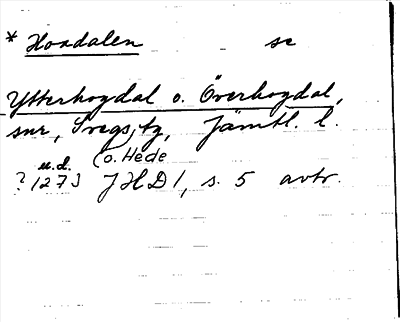 * Hoadalen se
Ytterhogdal o. Överhogdal,
snr, Svegs tg, Jämtl. l.
u.d. (o. Hede
? 1273 JHD 1, s. 5 avtr.